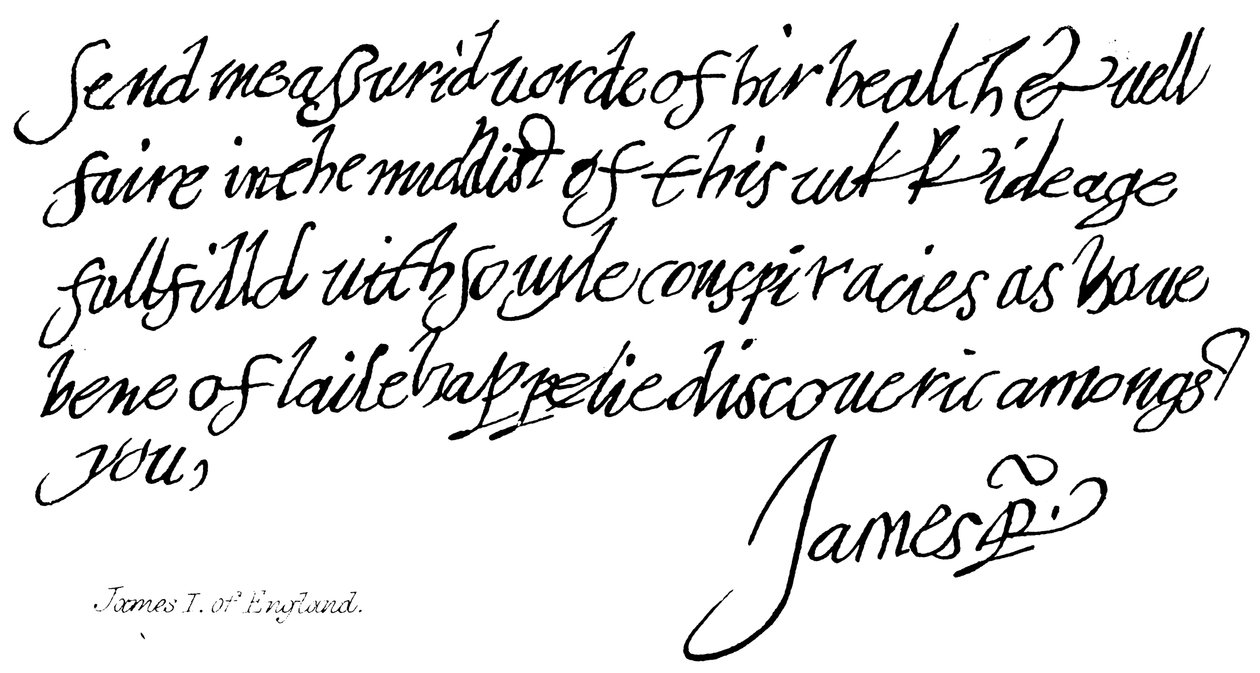 Send me assurid worde of hir health & well
faire in the middist of this wikkid age
fullfilld with so vyle conspiracies as have
bene of laite happelie discouerit amongst
you,
James R.
James I. of England.